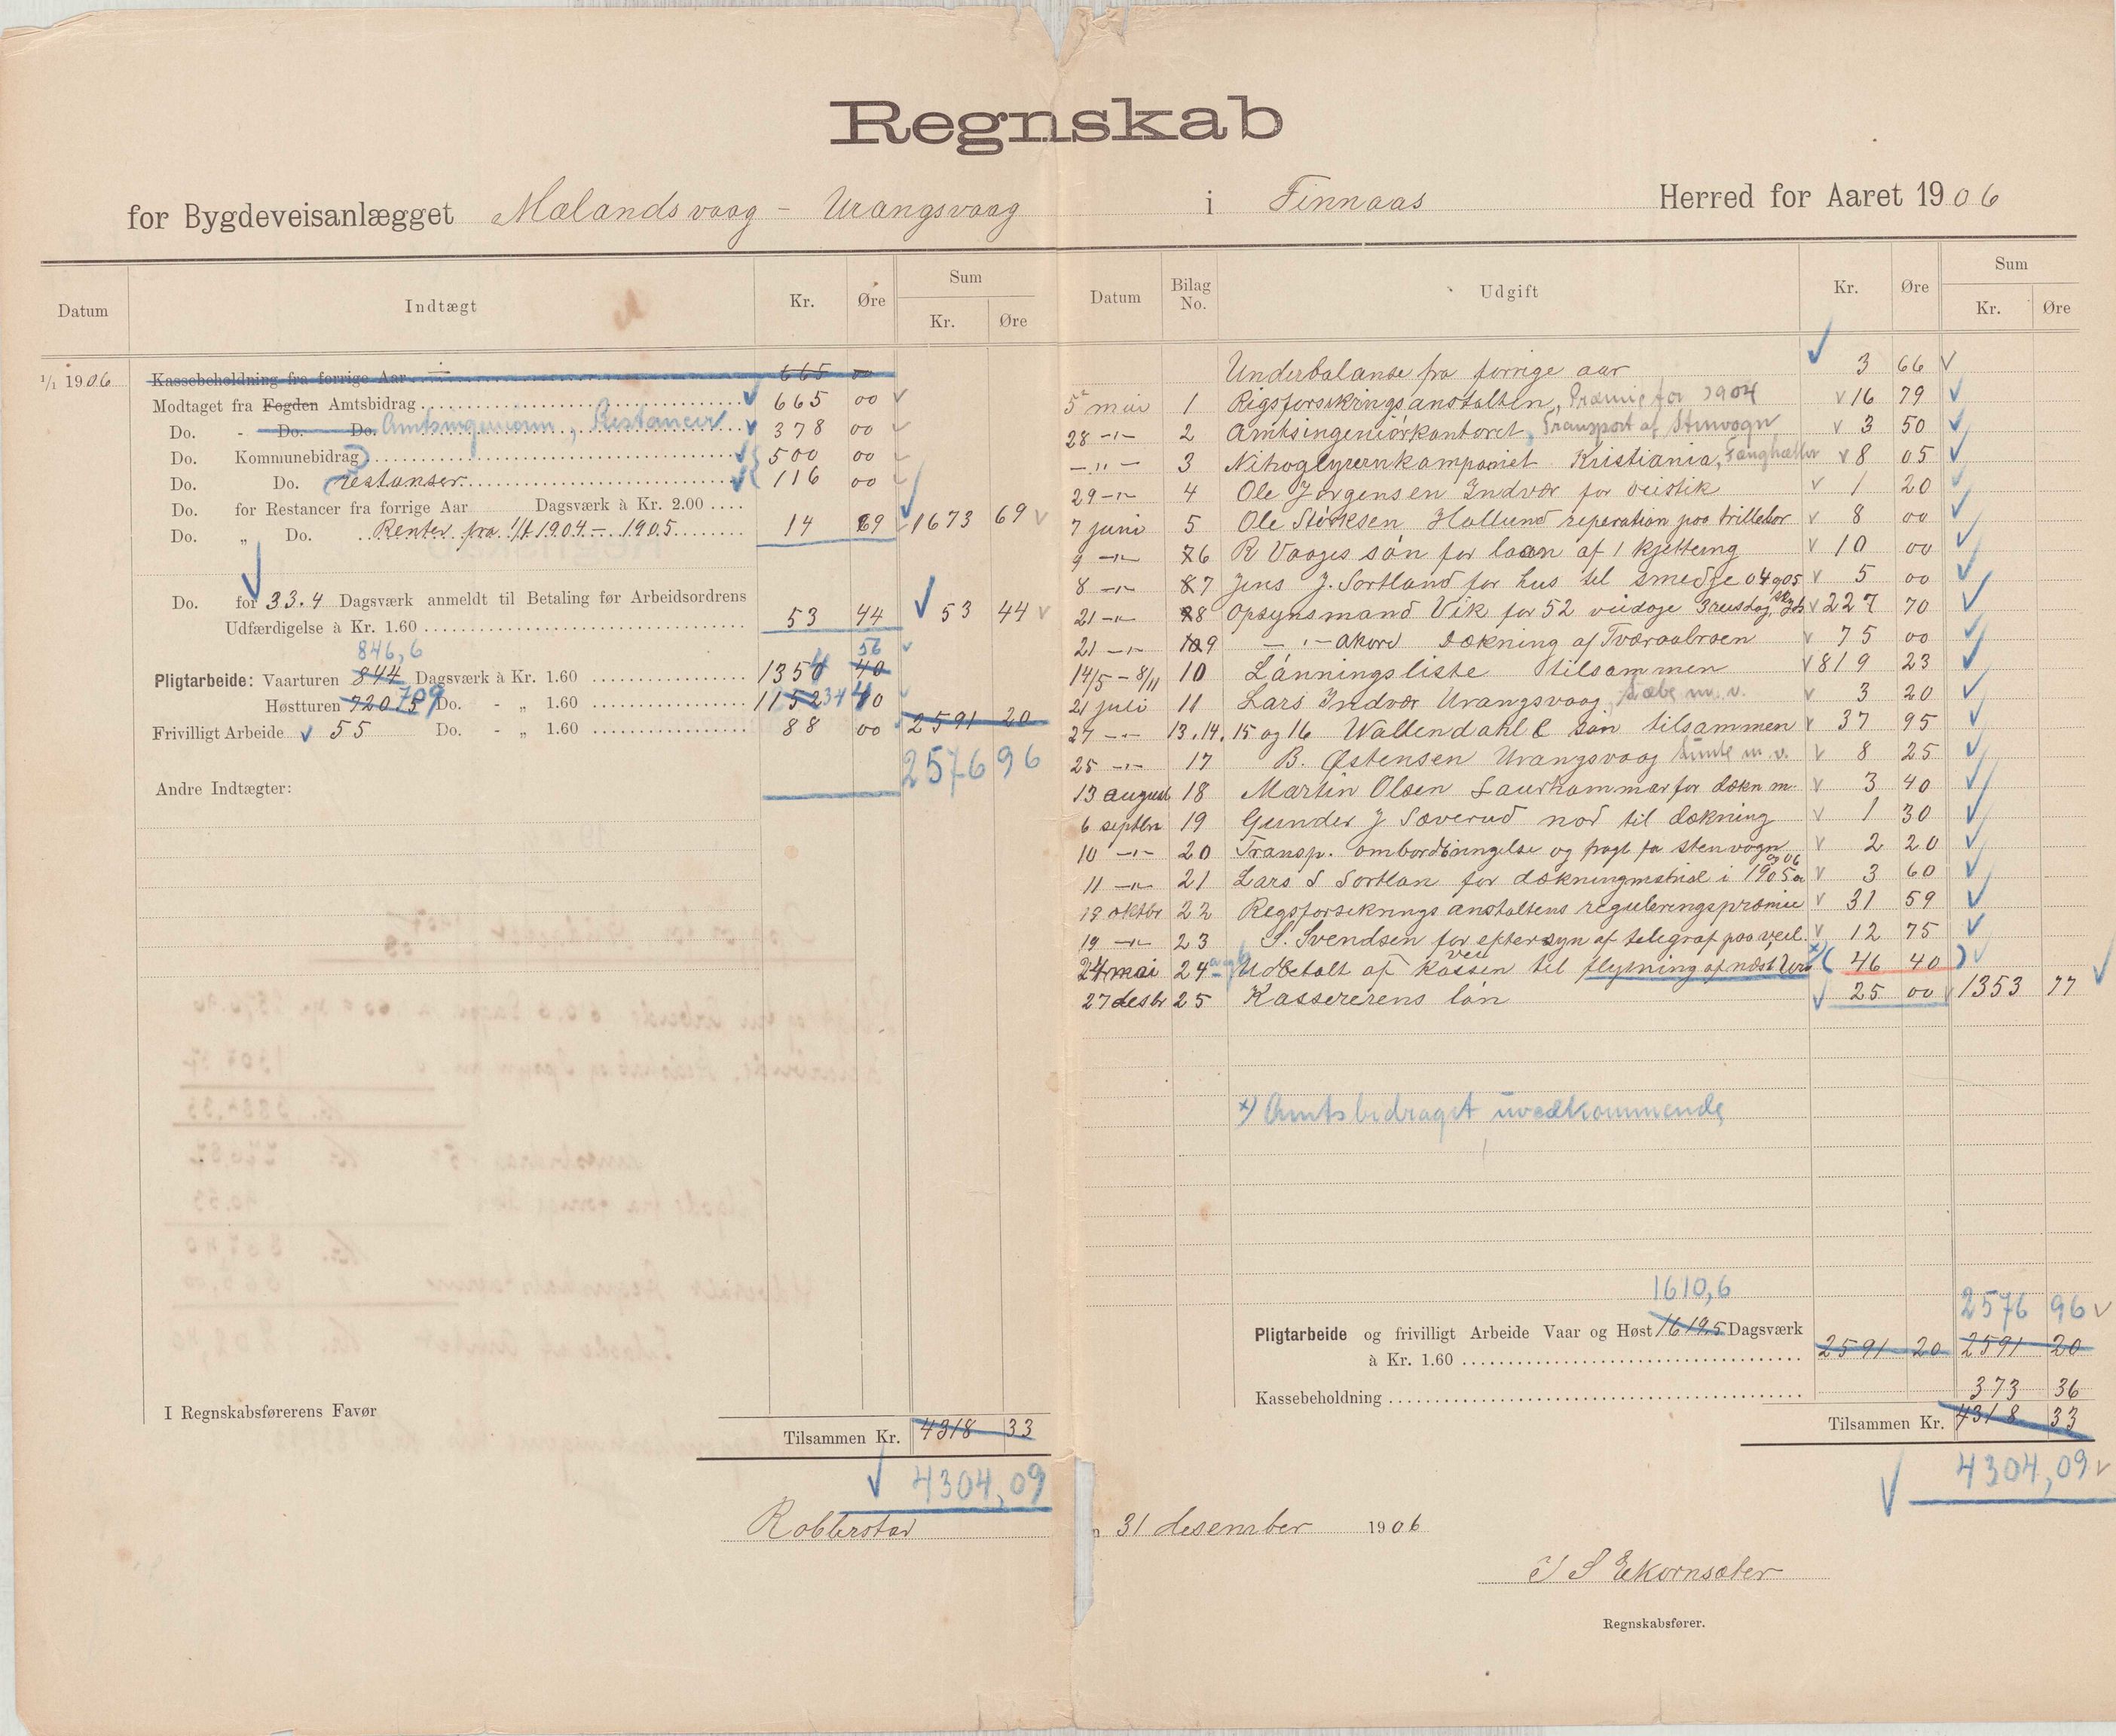 Regnskab
for Bygdeveisanlægget Mælandsvaag - Urangsvaag i Finnaas Herred for Aaret 1906
Datum Indtægt Kr. Øre Sum Kr. Øre
1/1 1906 Kassebeholdning fra forrige Aar 665 00
Modtaget fra Fogden Amtsbidrag 665 00
Do. - Do. Do. Amtsingeniøren, Restancer 378 00
Do. Kommunebidrag 500 00
Do. Do. restanser 116 00
Do. for Restancer fra forrige Aar Dagsværk à Kr. 2.00
Do. „ Do. Renter fra 1/1 1904 - 1905 14 69 1673 69
Do. for 33.4 Dagsværk anmeldt til Betaling før Arbeidsordrens
Udfærdigelse à Kr. 1.60 53 44 53 44
846,6 56
Pligtarbeide: Vaarturen 844 Dagsværk à Kr. 1.60 1350 40
Høstturen 720.5 709 Do. - „ 1.60 1152 34 40
Frivilligt Arbeide 55 Do. - „ 1.60 88 00 2591 20
2576 96
Andre Indtægter:
I Regnskabsførerens Favør
Tilsammen Kr. 4318 33
4304,09
Datum Bilag No. Udgift Kr. Øre Sum Kr. Øre
Underbalanse fra forrige aar 3 66
5 mai 1 Rigsforsikringsanstalten, Præmie for 1904 16 79
28 -"- 2 Amtsingeniørkontoret, Transport af Stenvogn 3 50
-"- 3 Nitroglycerinkompaniet Kristiania, Fænghætter 8 05
29 -"- 4 Ole Jørgensen Indvær for veistik 1 20
7 juni 5 Ole Størksen Hollund reperation paa trillebør 8 00
9 -"- 6 R Vaages søn for laan af 1 kjetting 10 00
8 -"- 7 Jens J. Sortland for hus til smedje 04 og 05 5 00
21 -"- 8 Opsynsmand Vik for 52 veidage 227 70
21 -"- 9 -"- akord dækning af Tværaabroen 75 00
14/5 - 8/11 10 Lønningsliste tilsammen 819 23
21 juli 11 Lars Indvær Urangsvaag, m. v. 3 20
24 -"- 13.14. 15 og 16 Wallendahl & søn tilsammen 37 95
25 -"- 17 B. Østensen Urangsvaag m. v. 8 25
13 august 18 Martin Olsen Laurhammar for dækn m. 3 40
6 septbr 19 Gunder J Sæverud nod til dækning 1 30
10 -"- 20 Transp. ombordbringelse og fragt fa stenvogn 2 20
11 -"- 21 Lars S Sortlan for dækningmatrial i 1905 og 06 3 60
19 oktbr 22 Regsforsikrings anstaltens reguleringspræmie 31 59
19 -"- 23 S. Svendsen for eftersyn af telegraf paa veil. 12 75
24 mai 24 Udbetalt af veikassen til flytning af 46 40
27 desbr 25 Kassererens løn 25 00 1353 77
x) Amtsbidraget uvedkommende
1610,6 2576 96
Pligtarbeide og frivilligt Arbeide Vaar og Høst 1619.5 Dagsværk
à Kr. 1.60 2591 20 2591 20
Kassebeholdning 373 36
Tilsammen Kr. 4318 33
4304,09
Robberstad 31 desember 1906
S Ekornsæter
Regnskabsfører.